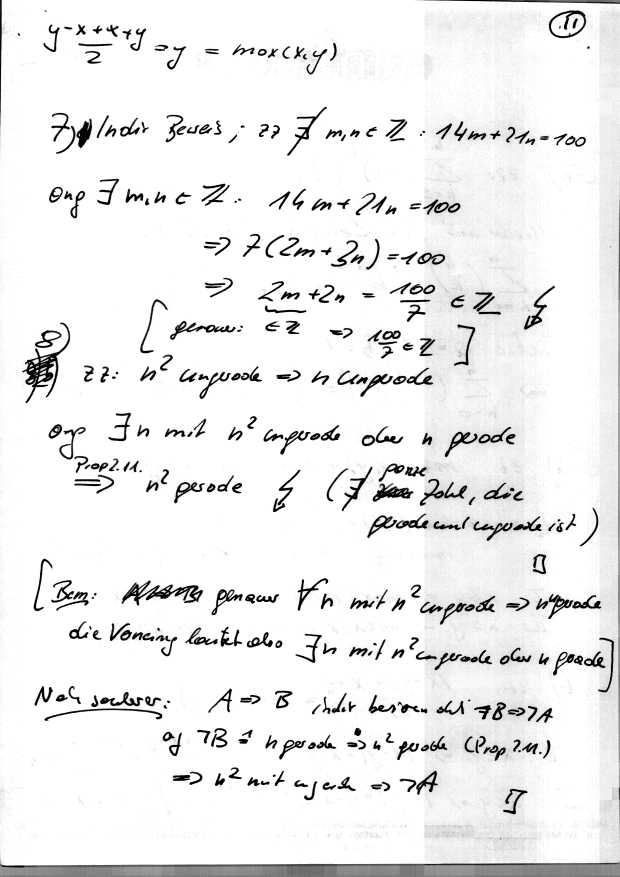 11
y-x+x+y / 2 = y = max(x,y)
7) Indir Beweis; zz ∄ m,n ∈ ℤ : 14m+21n=100
Ang ∃ m,n ∈ ℤ : 14m+21n=100
⇒ 7(2m+3n)=100
⇒ 2m+2n = 100/7 ∈ ℤ ↯
[genauer: ∈ ℤ ⇒ 100/7 ∈ ℤ]
8) zz: n² ungerade ⇒ n ungerade
Ang ∃ n mit n² ungerade aber n gerade
Prop 2.11.
⇒ n² gerade ↯ (∄ ganze Zahl, die
gerade und ungerade ist)
[Bem: genauer ∀n mit n² ungerade ⇒ n ungerade
die Verneing lautet also ∃n mit n² ungerade aber n gerade]
Noch sauberer: A ⇒ B indir beweisen ¬B ⇒ ¬A
¬B ⇒ n gerade ⇒ n² gerade (Prop 2.11.)
⇒ n² nicht ungerade ⇒ ¬A